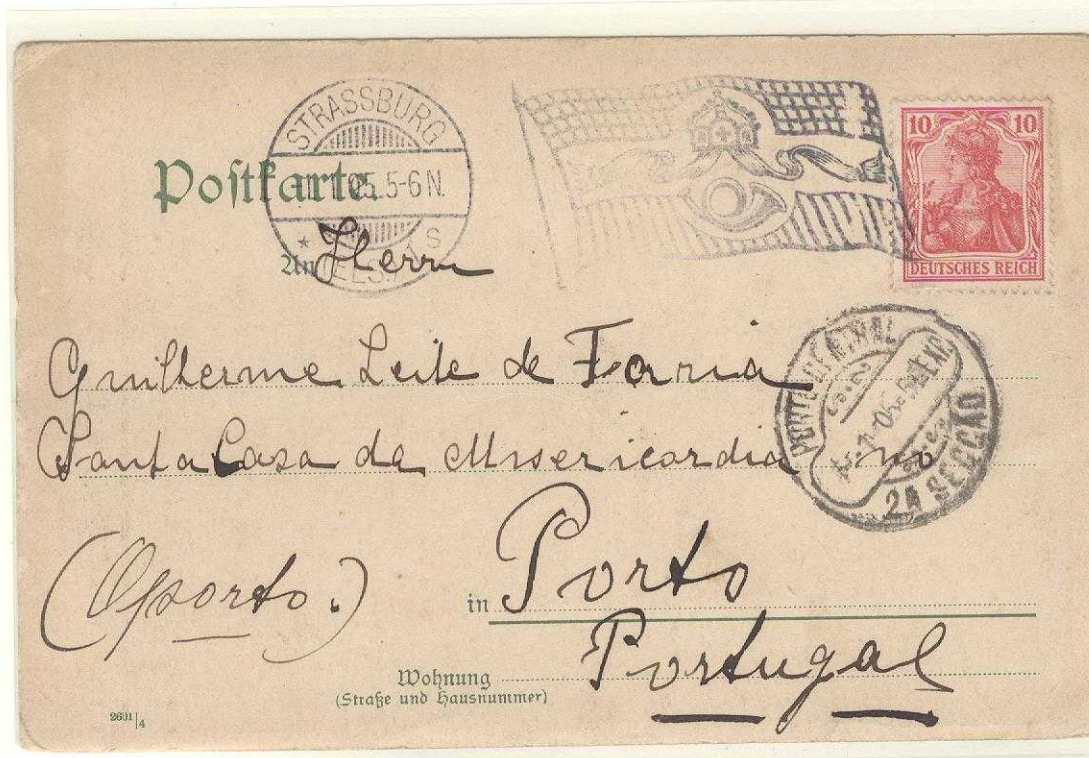 STRASSBURG
1.05.5-6 N.
* ELS. * s
Postkarte
10 10
DEUTSCHES REICH
An Herrn
Guilherme Leite de Faria
Santa Casa da Misericordia no
PORTO CENTRAL
2A SECÇÃO
(Oporto.)
in Porto
Portugal
Wohnung
(Straße und Hausnummer)
2601/4